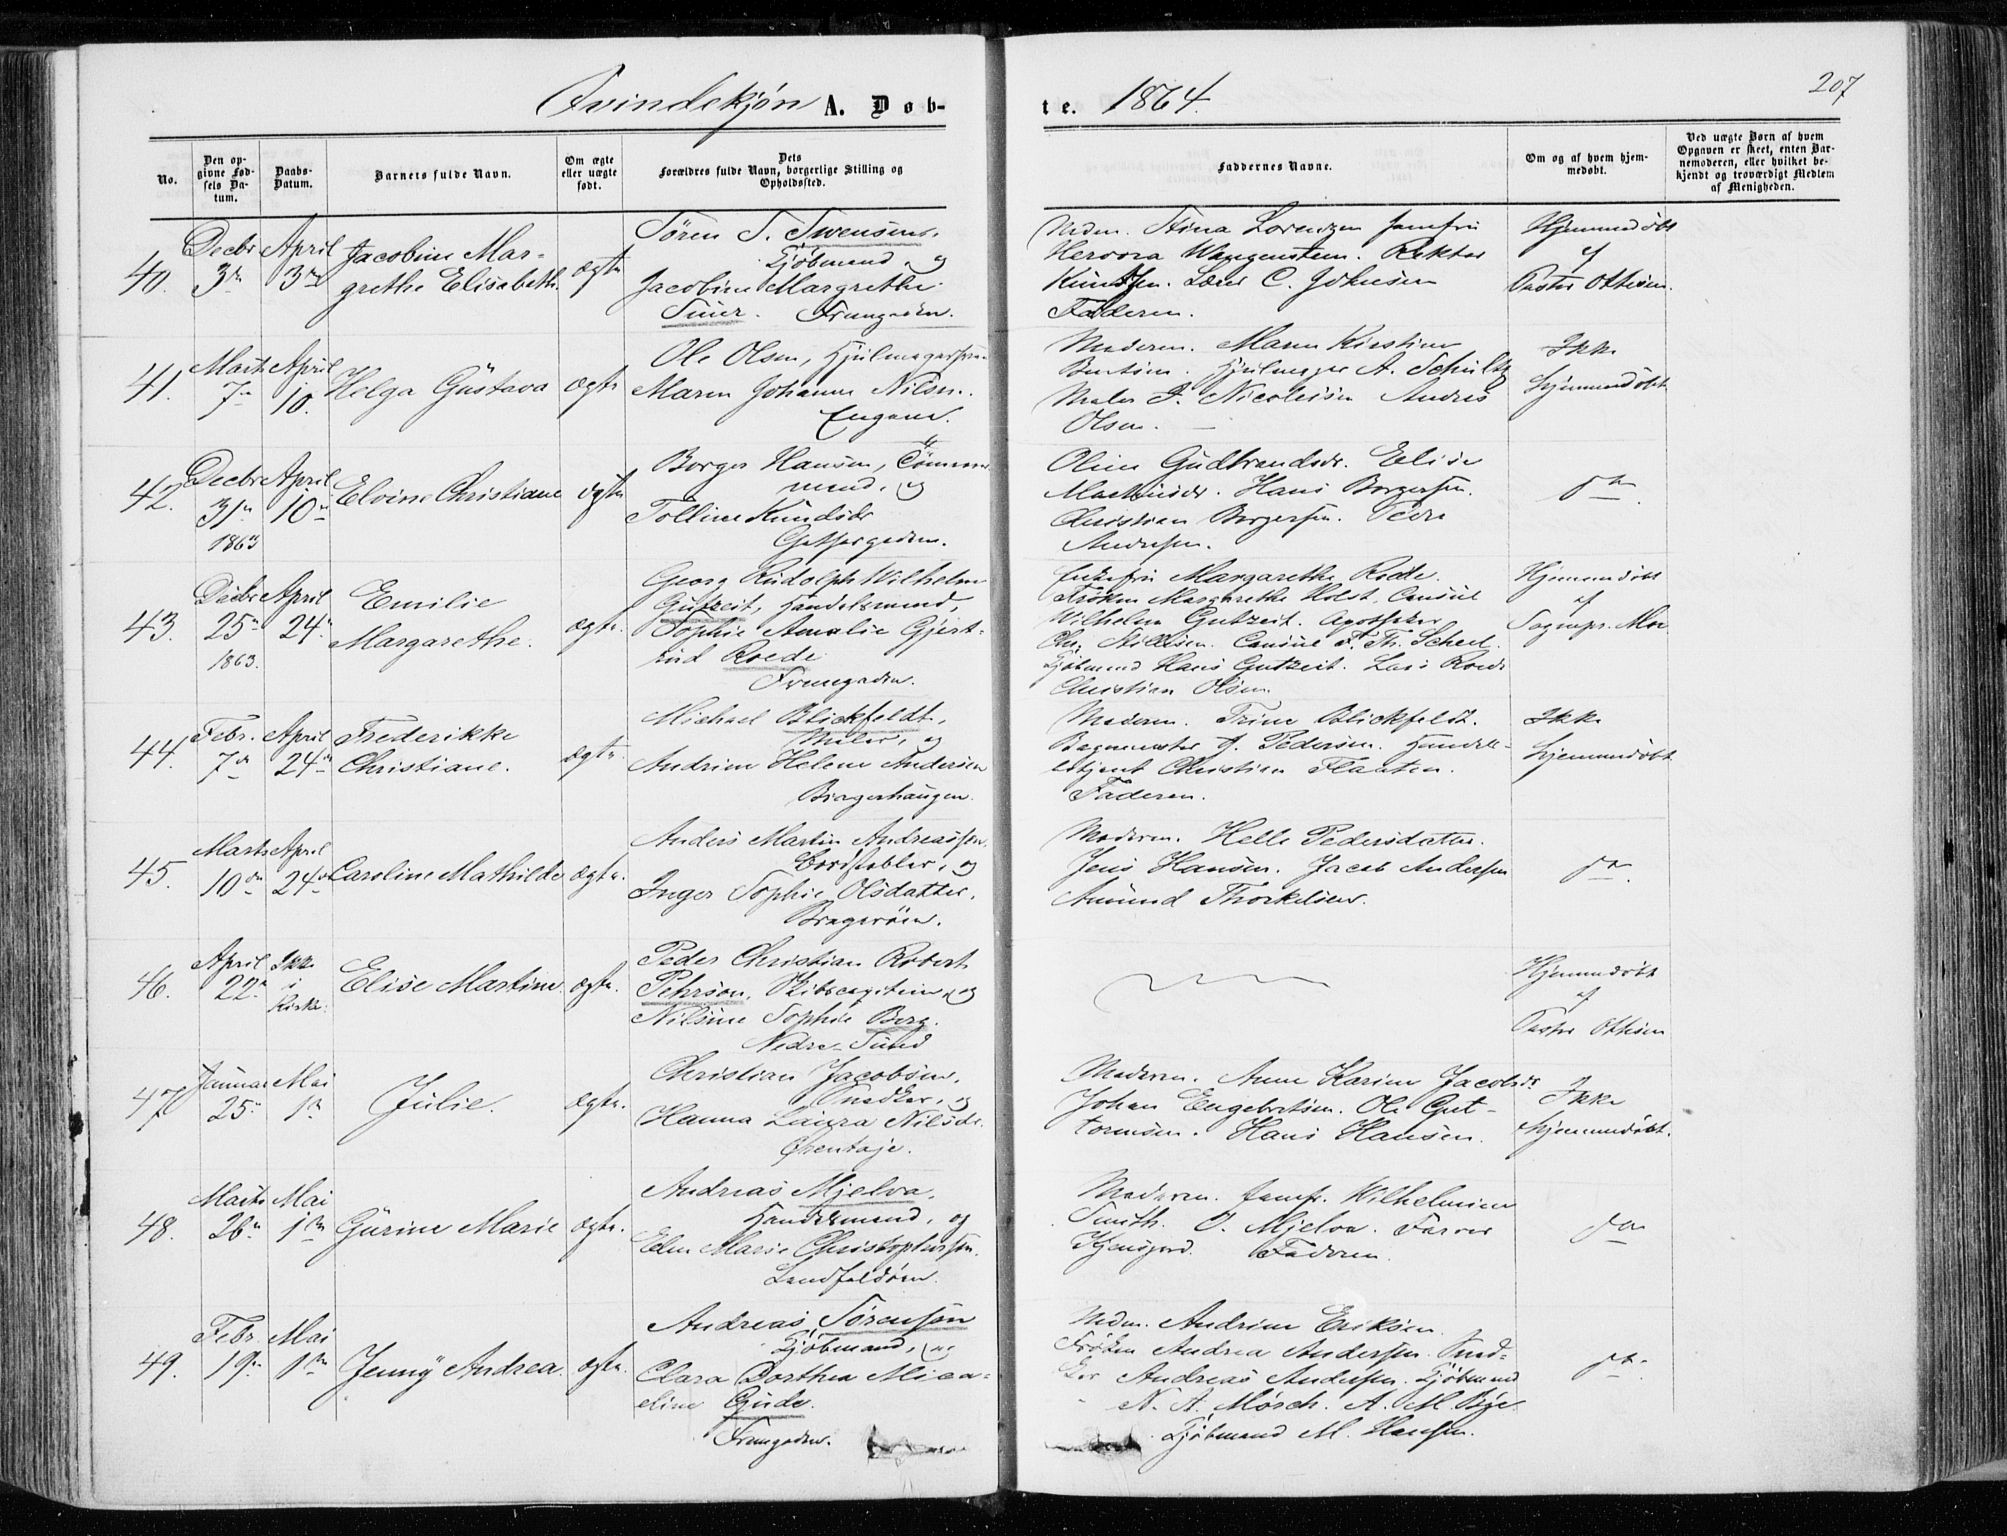 207
Qvindekjøn A. Døb-
te. 1864.
No.
Den op-
givne Fød-
sels Da-
tum.
Daabs-
Datum.
Barnets fulde Navn.
Om ægte
eller uægte
født.
Dets
Forældres fulde Navn, borgerlige Stilling og
Opholdssted.
Faddernes Navne.
Om og af hvem hjem-
medøbt.
Ved uægte Børn af hvem
Opgaven er skeet, enten Bar-
nemoderen, eller hvilket be-
kjendt og troværdigt Medlem
af Menigheden.
40.
Decbr
3
April
3
Jacobine Mar-
grethe Elisabeth.
ægte
Søren S. Svensen,
Kjøbmand og
Jacobine Margrethe
Frumgaden.
Stina Lorenzen Jomfru
Wangensteen. Rektor
Knudsen. Lærer C. Johnsen
Faderen.
Hjemmedøbt
af
Pastor Ottesen.
41.
Marts
7
April
10.
Helga Gustava
ægte
Ole Olsen,
Maren Johanne Nilsen.
Engene.
Moderen. Maren Kirstine
Berntsen. A. Schultz
Maler J. Nicolaisen Andreas
Olsen.
Ikke
hjemmedøbt
42.
Decbr
31
1863
April
10
Elvine Christiane
ægte
Borger Hansen, Tømmer
mand, og
Tolline Knudsdr
Oline Gudbrandsdr. Elise
Hans Borgersen.
Christian Borgersen. Peder
Andersen.
do
43.
Decbr
25
1863.
April
24
Emilie
Margarethe.
ægte.
Georg Rudolph Wilhelm
Gutzeit, Handelsmand,
Sophie Amalie Gjert-
rud Roede
Frumgaden.
Enkefru Margarethe Roede.
Frøken Margarethe Holst. Consul
Wilhelm Gutzeit. Apotheker
Chr. Nielsen. Consul F. Th. Scheel.
Kjøbmand Hans Gutzeit. Lars Roede
Christian Olsen.
Hjemmedøbt
af
Sognepr. Moe
44.
Febr.
7
April
24
Frederikke
Christiane.
ægte.
Michael Blickfeldt,
Maler, og
Andrine Helene Andersen
Bragerhaugen.
Moderen. Trine Blickfeldt.
Bagermester J. Pedersen. Handels-
betjent Christian Flaaten.
Faderen.
Ikke
hjemmedøbt
45.
Marts
10
April
24
Caroline Mathilde
ægte.
Anders Martin Andreassen,
Bordstabler, og
Inger Sophie Olsdatter.
Bragerøen.
Moderen. Helle Pedersdatter.
Jens Hansen. Jacob Andersen
Amund Thorkelsen.
do
46.
April
22
Ikke
i
Kirke.
Elise Martine
ægte.
Peder Christian Robert
Pehrson, Skibscaptein, og
Nilsine Sophie Berg.
Nedre Sund
Hjemmedøbt
af
Pastor Ottesen
47
Januar
25
Mai
1
Julie.
ægte.
Christian Jacobsen,
Snedker, og
Hanna Laura Nilsdr.
Ørentaje.
Moderen. Anne Karine Jacobsdr
Johan Engebretsen. Ole Gut-
tormsen. Hans Hansen.
Ikke
hjemmedøbt.
48.
Marts
26
Mai
1
Gurine Marie
ægte.
Andreas Mjelva,
Handelsmand, og
Elen Marie Christophersen.
Landfaldøen.
Moderen. Jomfr. Wilhelmine
Smith. O. Mjelva. Farver
Faderen.
do
49.
Febr.
19
Mai
1
Jenny Andrea.
ægte.
Andreas Sørensen
Kjøbmand, og
Clara Dorthea Mica-
eline Gude.
Frumgaden.
Andrine Eriksen.
Frøken Andrea Andersen. Sned-
ker Andreas Andersen. Kjøbmand
N. A. Mørch. A. M. Bye.
Kjøbmand M. Hansen.
do